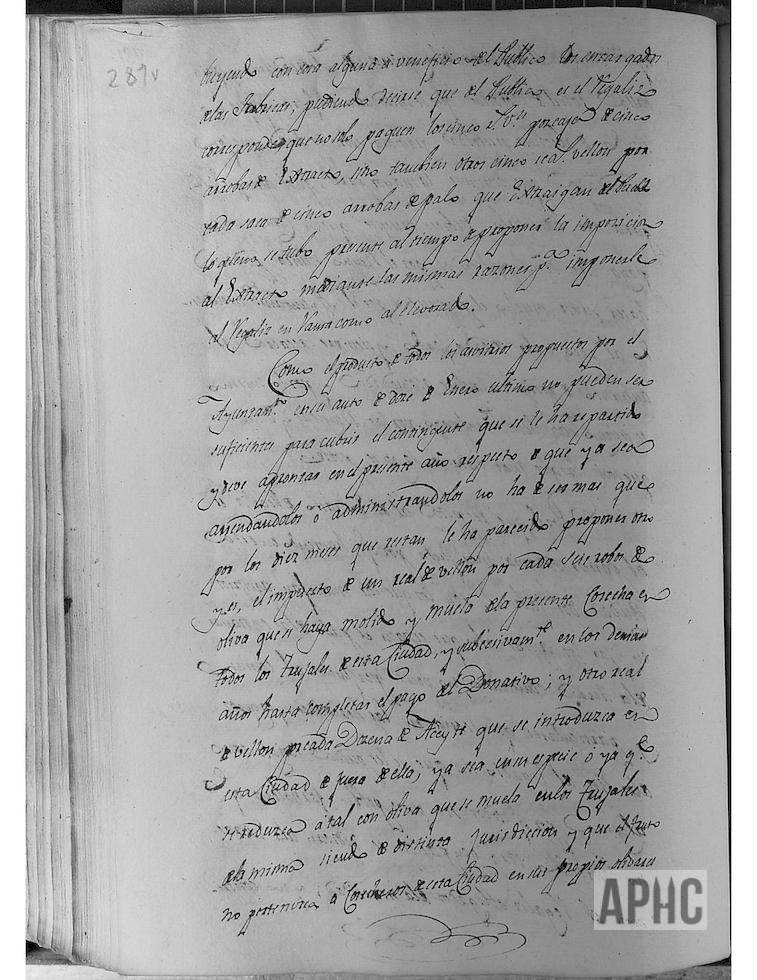 289v
buyendo con cosa alguna a veneficio del Publico los encargados
de las Fabricas; pudiendo decirse que del Publico es el Regaliz
corresponde que no solo paguen los cinco r.s v.n por caja de cinco
arrobas de Extracto, sino tambien otros cinco reales vellon por
cada saca de cinco arrobas de palo que Extraigan del Pueblo
lo que no se tubo presente al tiempo de proponer la imposicion
al Extracto mediante las mismas razones p.a imponerle
al Regaliz en Rama como al elevorado.
Como el producto de todos los arvitrios propuestos por el
Ayuntam.to en su auto de doze de Enero ultimo no pueden ser
suficientes para cubrir el contingente que se le ha repartido
y deve aprontar en el presente año respecto de que ya sea
arrendandolos o administrandolos no ha de ser mas que
por los diez meses que restan le ha parecido proponer otro
y es, el impuesto de un real de vellon por cada seis robos de
oliva que se haya molido y muela de la presente Cosecha en
todos los Trujales de esta Ciudad, y subcesivam.te en los demas
años hasta completar el pago del Donativo; y otro real
de vellon por cada Dozena de Aceyte que se introduzca en
esta Ciudad de fuera de ella; ya sea en su especie o ya q.e
se reduzca a tal con oliva que se muela en los Trujales
de la misma siendo de distinta jurisdiccion y que el fruto
no pertenezca a Cosecheros de esta Ciudad en sus propios olibares
APHC